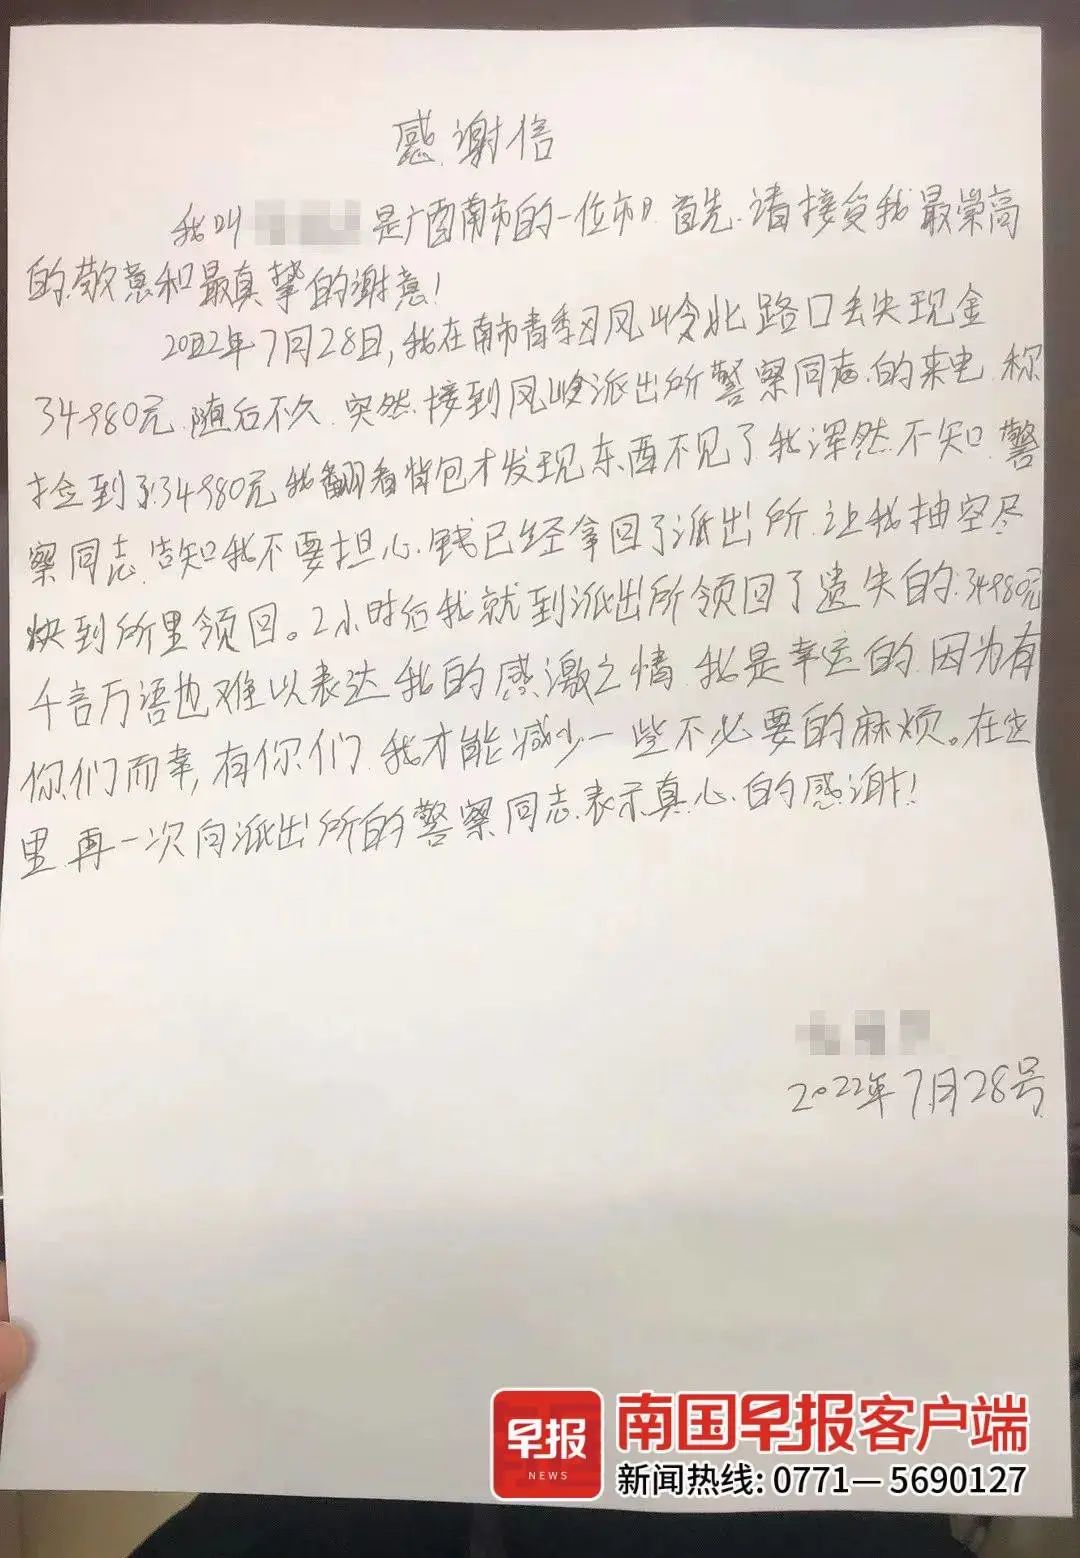 感谢信
我叫 是广酉南市的一位市 首先.请接受我最崇高
的敬意和最真挚的谢意!
2022年7月28日,我在南市青季 凤岭北路口丢失现金
34980元.随后不久.突然.接到凤岭派出所警察同志.的来电.称
捡到了34980元我翻看背包才发现东西不见了我浑然不知.警
察同志.告知我不要担心.钱已经拿回了派出所.让我抽空尽
快到所里领回。2小时后我就到派出所领回了遗失的.34980元
千言万语也难以表达我的感激之情.我是幸运的.因为有
你们而幸,有你们.我才能减少一些不必要的麻烦。在这
里.再一次向派出所的警察同志.表示真心.的感谢!
2022年7月28号
早报
NEWS
南国早报客户端
新闻热线: 0771—5690127